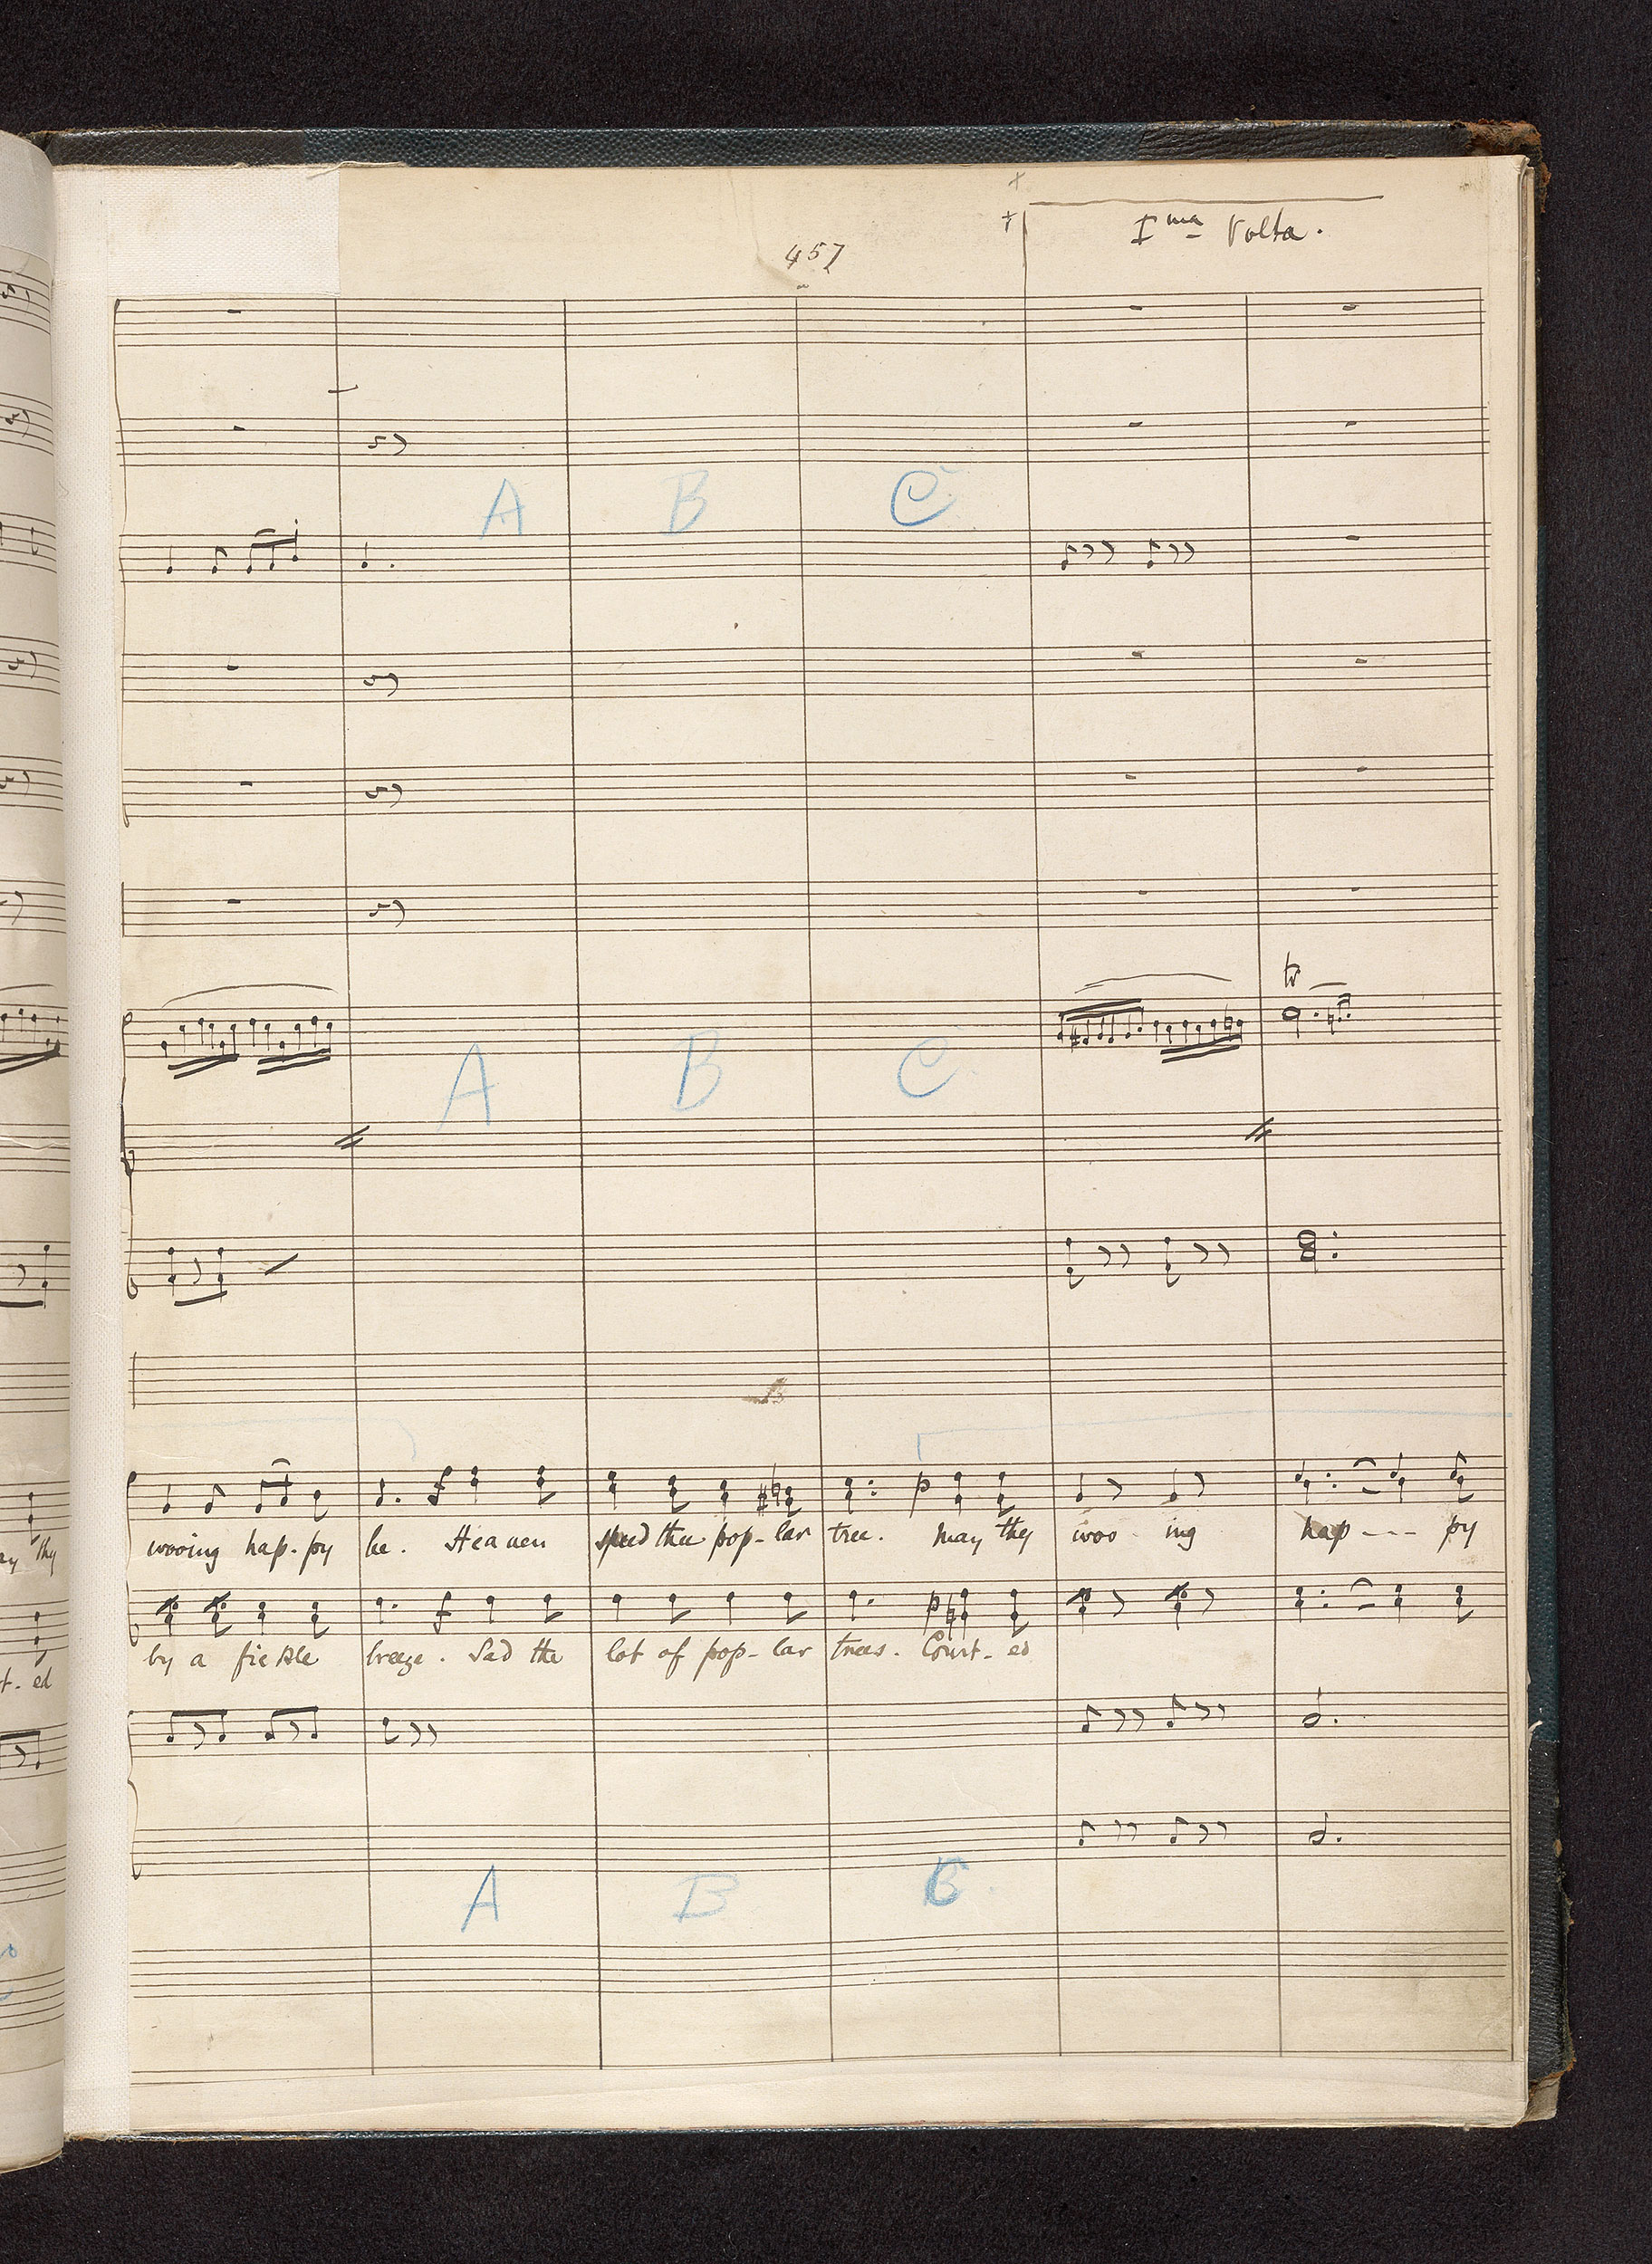 457
Ima Volta.
A B C
tr
A B C
wooing hap-py be. Heaven speed thee pop-lar tree. May thy woo - ing hap - - - py
by a fickle breeze. Sad the lot of pop-lar trees. Court-ed
A B C